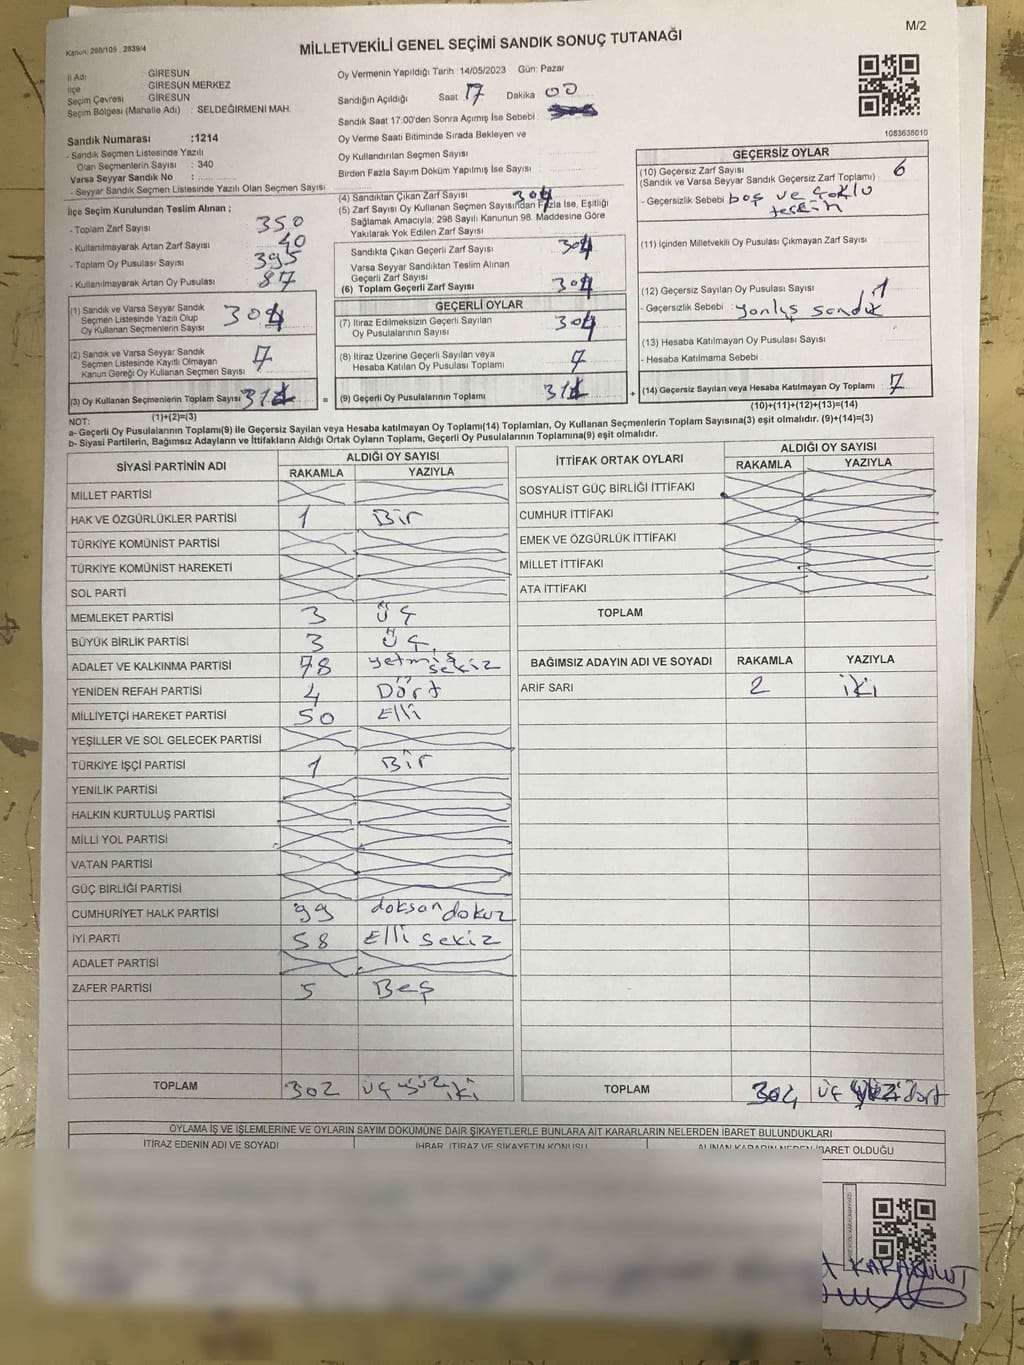 M/2
Kanun: 298/105 , 2839/4
MİLLETVEKİLİ GENEL SEÇİMİ SANDIK SONUÇ TUTANAĞI
İl Adı : GİRESUN
İlçe : GİRESUN MERKEZ
Seçim Çevresi : GİRESUN
Seçim Bölgesi (Mahalle Adı) : SELDEĞİRMENİ MAH.
Oy Vermenin Yapıldığı Tarih :14/05/2023 Gün: Pazar
Sandığın Açıldığı Saat 17 Dakika 00
Sandık Saat 17:00'den Sonra Açılmış İse Sebebi
Oy Verme Saati Bitiminde Sırada Bekleyen ve
Oy Kullandırılan Seçmen Sayısı
Birden Fazla Sayım Döküm Yapılmış İse Sayısı
1083636010
Sandık Numarası :1214
- Sandık Seçmen Listesinde Yazılı
Olan Seçmenlerin Sayısı : 340
Varsa Seyyar Sandık No :
- Seyyar Sandık Seçmen Listesinde Yazılı Olan Seçmen Sayısı
İlçe Seçim Kurulundan Teslim Alınan ;
- Toplam Zarf Sayısı 350
- Kullanılmayarak Artan Zarf Sayısı 40
- Toplam Oy Pusulası Sayısı 395
- Kullanılmayarak Artan Oy Pusulası 87
(1) Sandık ve Varsa Seyyar Sandık
Seçmen Listesinde Yazılı Olup
Oy Kullanan Seçmenlerin Sayısı 304
(2) Sandık ve Varsa Seyyar Sandık
Seçmen Listesinde Kayıtlı Olmayan
Kanun Gereği Oy Kullanan Seçmen Sayısı 7
(3) Oy Kullanan Seçmenlerin Toplam Sayısı
(1)+(2)=(3)
(4) Sandıktan Çıkan Zarf Sayısı 304
(5) Zarf Sayısı Oy Kullanan Seçmen Sayısından Fazla İse, Eşitliği
Sağlamak Amacıyla; 298 Sayılı Kanunun 98. Maddesine Göre
Yakılarak Yok Edilen Zarf Sayısı
Sandıkta Çıkan Geçerli Zarf Sayısı 304
Varsa Seyyar Sandıktan Teslim Alınan
Geçerli Zarf Sayısı
(6) Toplam Geçerli Zarf Sayısı 304
GEÇERLİ OYLAR
(7) İtiraz Edilmeksizin Geçerli Sayılan
Oy Pusulalarının Sayısı 304
(8) İtiraz Üzerine Geçerli Sayılan veya
Hesaba Katılan Oy Pusulası Toplamı 7
= (9) Geçerli Oy Pusulalarının Toplamı
GEÇERSİZ OYLAR
(10) Geçersiz Zarf Sayısı 6
(Sandık ve Varsa Seyyar Sandık Geçersiz Zarf Toplamı)
- Geçersizlik Sebebi boş ve çoklu
tercih
(11) İçinden Milletvekili Oy Pusulası Çıkmayan Zarf Sayısı
(12) Geçersiz Sayılan Oy Pusulası Sayısı 1
- Geçersizlik Sebebi yanlış sandık
(13) Hesaba Katılmayan Oy Pusulası Sayısı
- Hesaba Katılmama Sebebi
+ (14) Geçersiz Sayılan veya Hesaba Katılmayan Oy Toplamı 7
(10)+(11)+(12)+(13)=(14)
NOT:
a- Geçerli Oy Pusulalarının Toplamı(9) ile Geçersiz Sayılan veya Hesaba katılmayan Oy Toplamı(14) Toplamları, Oy Kullanan Seçmenlerin Toplam Sayısına(3) eşit olmalıdır. (9)+(14)=(3)
b- Siyasi Partilerin, Bağımsız Adayların ve İttifakların Aldığı Ortak Oyların Toplamı, Geçerli Oy Pusulalarının Toplamına(9) eşit olmalıdır.
SİYASİ PARTİNİN ADI ALDIĞI OY SAYISI
RAKAMLA YAZIYLA
MİLLET PARTİSİ
HAK VE ÖZGÜRLÜKLER PARTİSİ 1 Bir
TÜRKİYE KOMÜNİST PARTİSİ
TÜRKİYE KOMÜNİST HAREKETİ
SOL PARTİ
MEMLEKET PARTİSİ 3 Üç
BÜYÜK BİRLİK PARTİSİ 3 Üç
ADALET VE KALKINMA PARTİSİ 78 yetmiş sekiz
YENİDEN REFAH PARTİSİ 4 Dört
MİLLİYETÇİ HAREKET PARTİSİ 50 Elli
YEŞİLLER VE SOL GELECEK PARTİSİ
TÜRKİYE İŞÇİ PARTİSİ 1 Bir
YENİLİK PARTİSİ
HALKIN KURTULUŞ PARTİSİ
MİLLİ YOL PARTİSİ
VATAN PARTİSİ
GÜÇ BİRLİĞİ PARTİSİ
CUMHURİYET HALK PARTİSİ 99 doksan dokuz
İYİ PARTİ 58 Elli sekiz
ADALET PARTİSİ
ZAFER PARTİSİ 5 Beş
TOPLAM 302 üç yüz iki
İTTİFAK ORTAK OYLARI ALDIĞI OY SAYISI
RAKAMLA YAZIYLA
SOSYALİST GÜÇ BİRLİĞİ İTTİFAKI
CUMHUR İTTİFAKI
EMEK VE ÖZGÜRLÜK İTTİFAKI
MİLLET İTTİFAKI
ATA İTTİFAKI
TOPLAM
BAĞIMSIZ ADAYIN ADI VE SOYADI RAKAMLA YAZIYLA
ARİF SARI 2 iki
TOPLAM 304 üç yüz dört
OYLAMA İŞ VE İŞLEMLERİNE VE OYLARIN SAYIM DÖKÜMÜNE DAİR ŞİKAYETLERLE BUNLARA AİT KARARLARIN NELERDEN İBARET BULUNDUKLARI
İTİRAZ EDENİN ADI VE SOYADI İHBAR, İTİRAZ VE ŞİKAYETİN KONUSU ALINAN KARARIN NEDEN İBARET OLDUĞU
KARABULUT